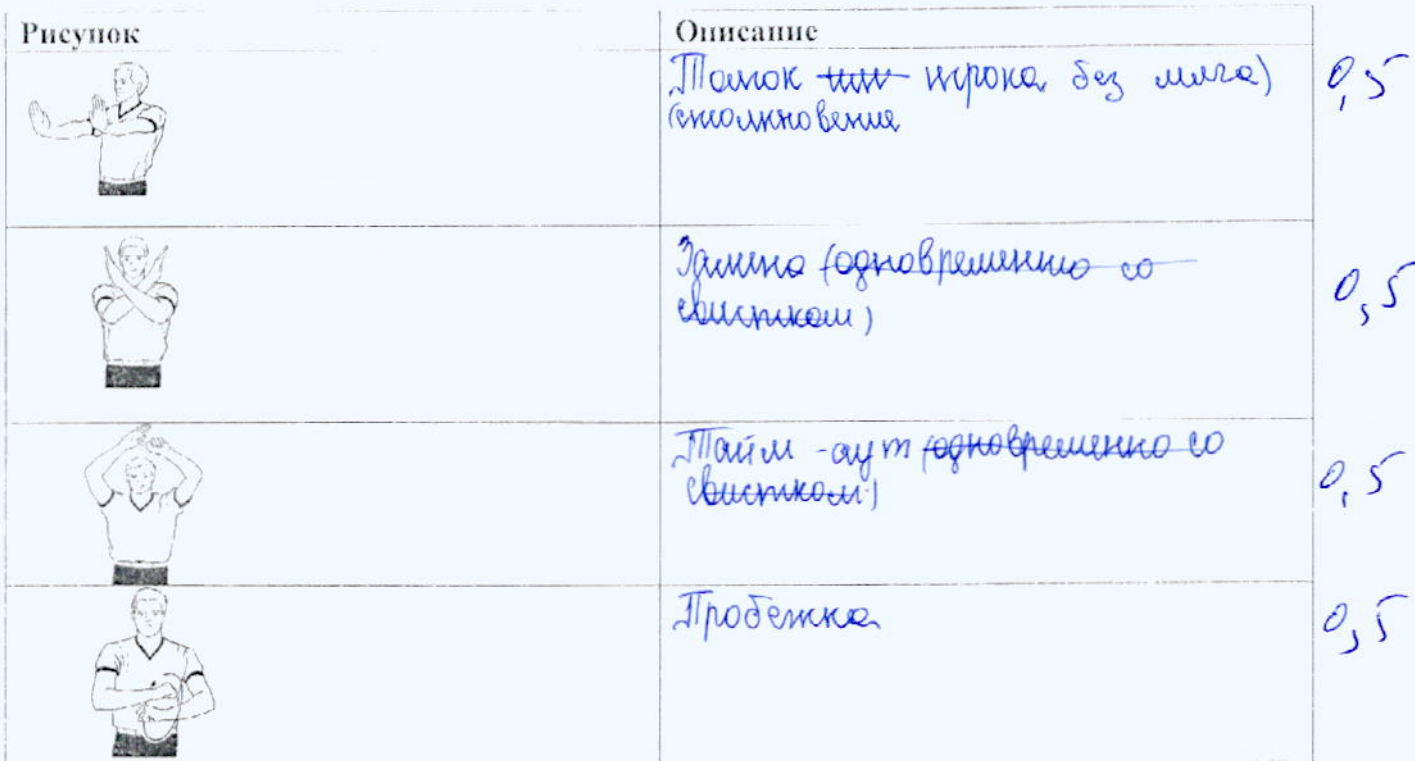 Рисунок Описание
Толчок или игрока без мяча) 0,5
(столкновение
Замена (одновременно со
свистком) 0,5
Тайм-аут (одновременно со
свистком) 0,5
Пробежка 0,5